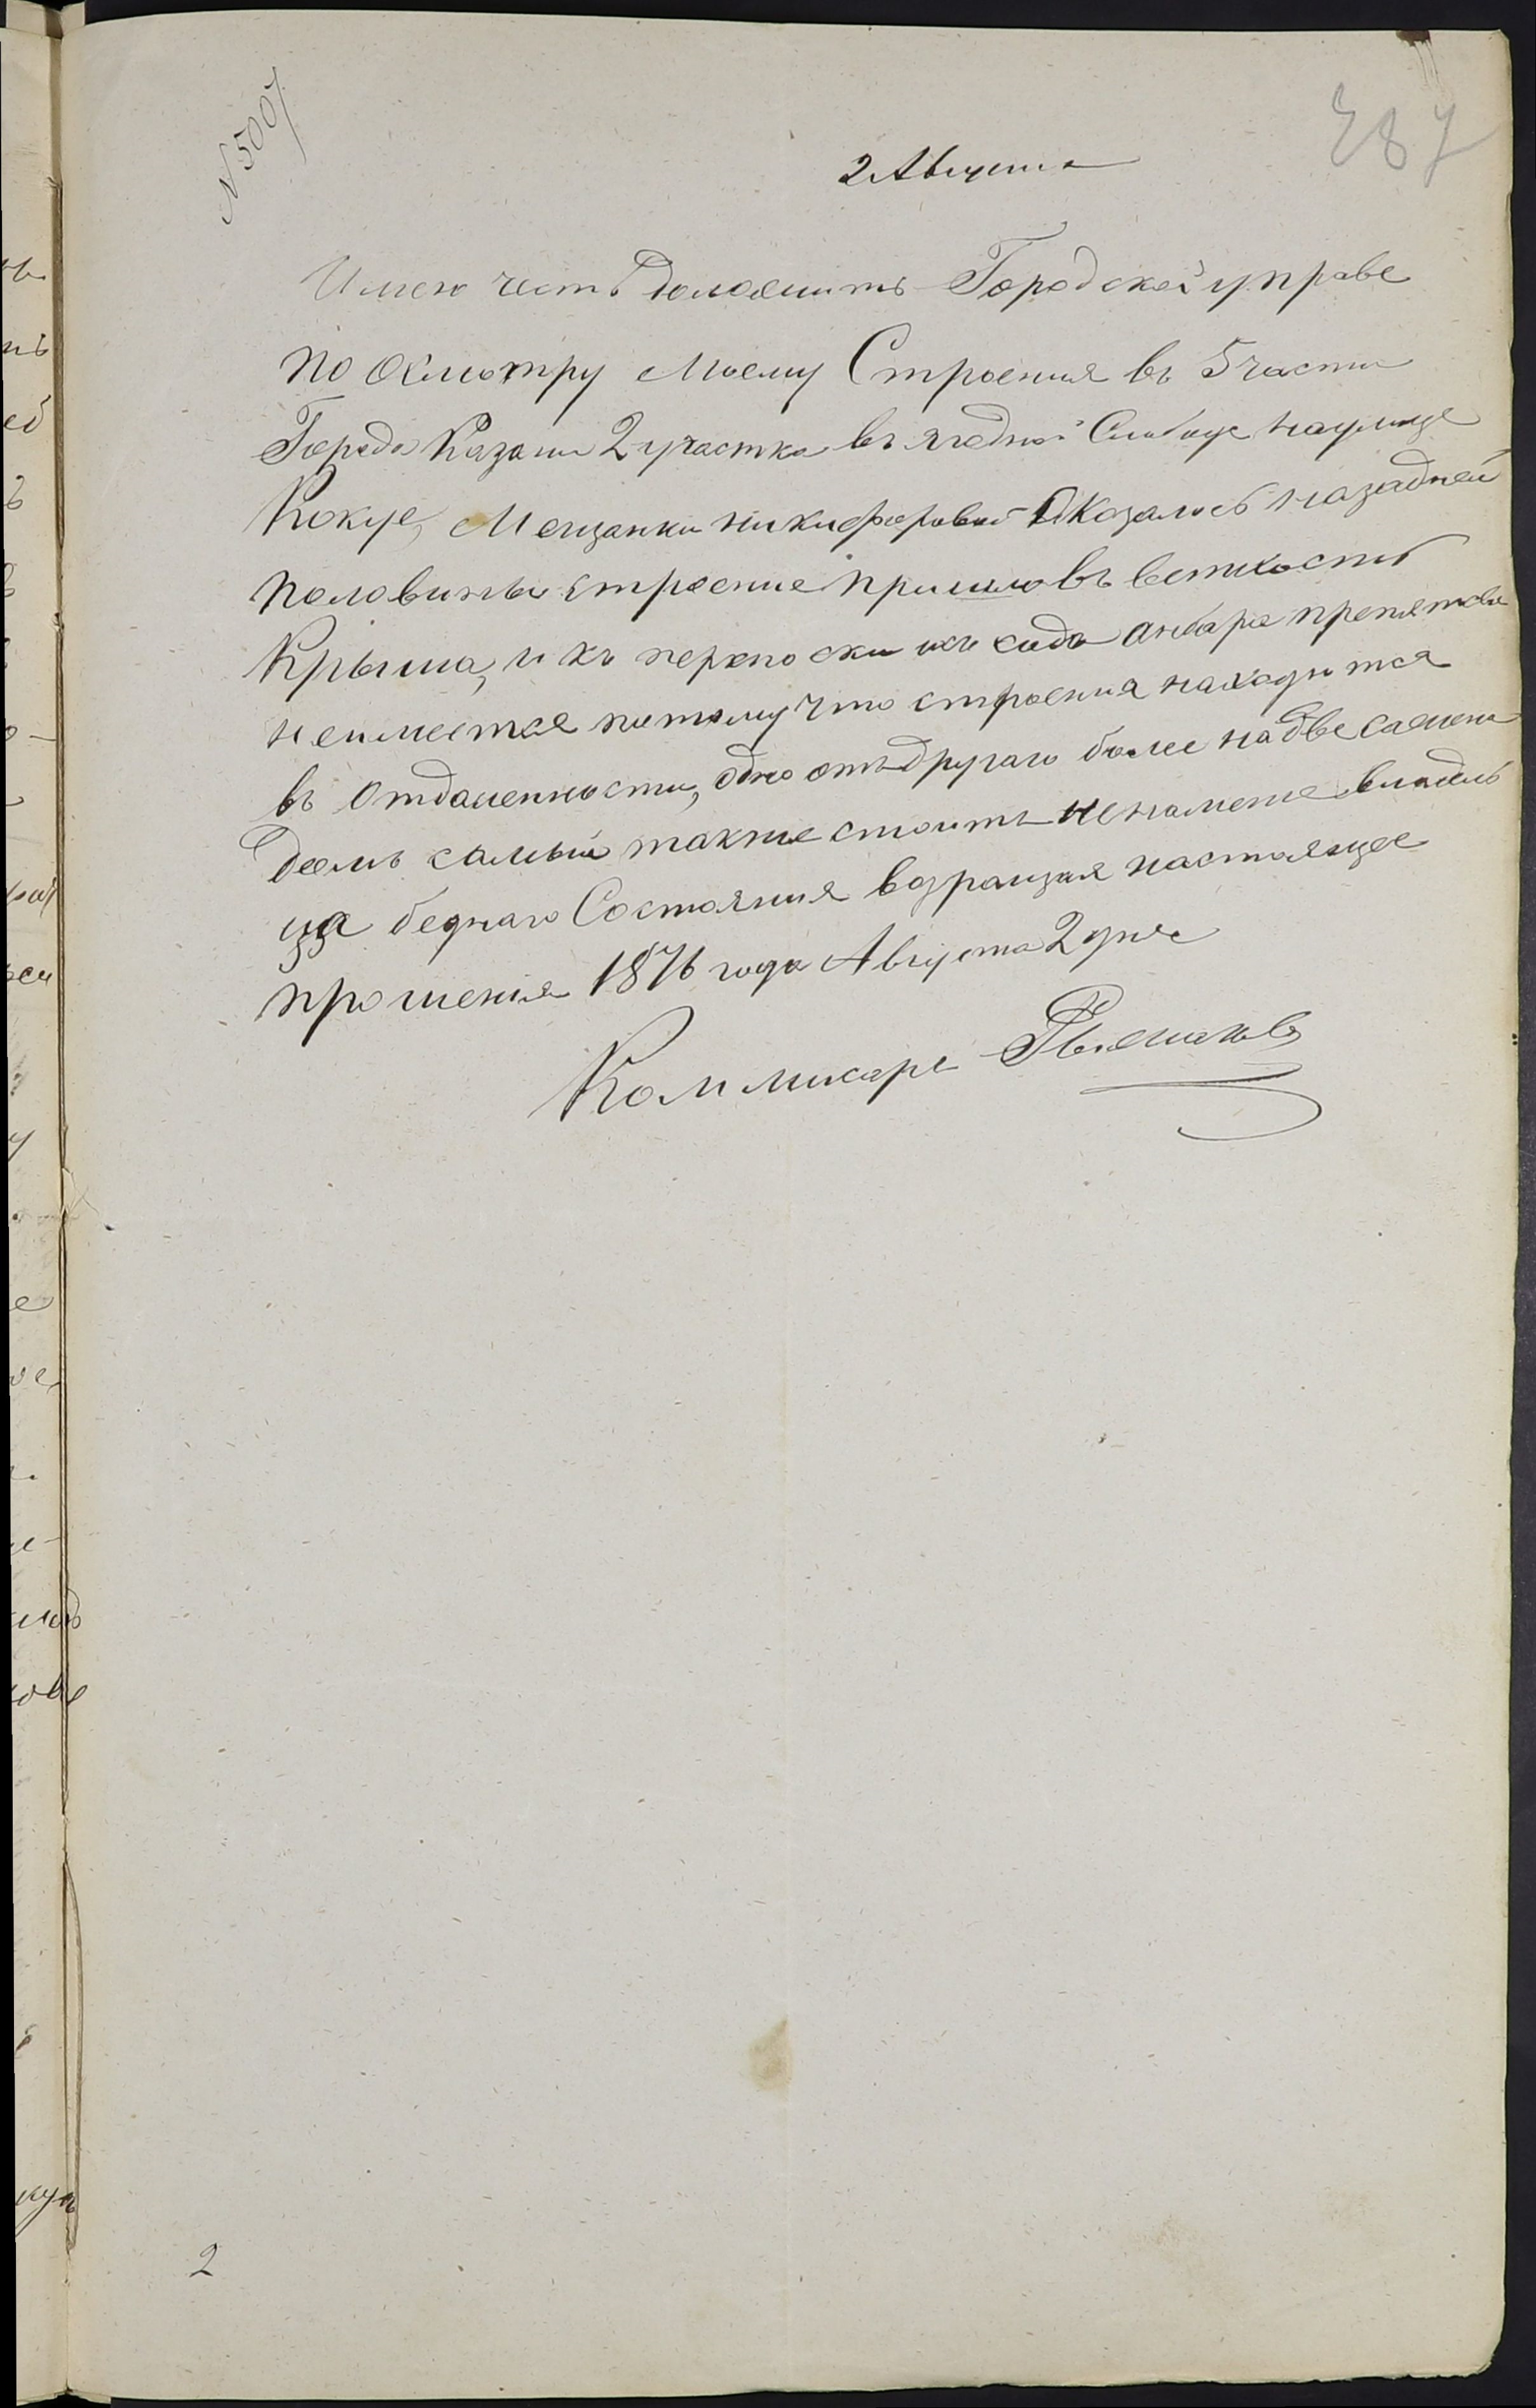 N 5007
287
2 Августа
Имею честь доложить Городской управе
по осмотру моему Строения въ 5 части
Города Казани 2 участка въ ягодной Слободе на улице
Кокуе, Мещанки никифоровой Оказалось на задней
половины строение пришло въ ветхость
Крыша, и къ переноски изъ сада анбара препятсвия
неимеется потому что строения находится
въ отдаленности, одно отъ другаго более на две сажени
домъ самый также стоить не на меже владель
ца беднаго Состояния возращая настоящее
прошения 1876 года Августа 2 дня
Коммисаръ
2